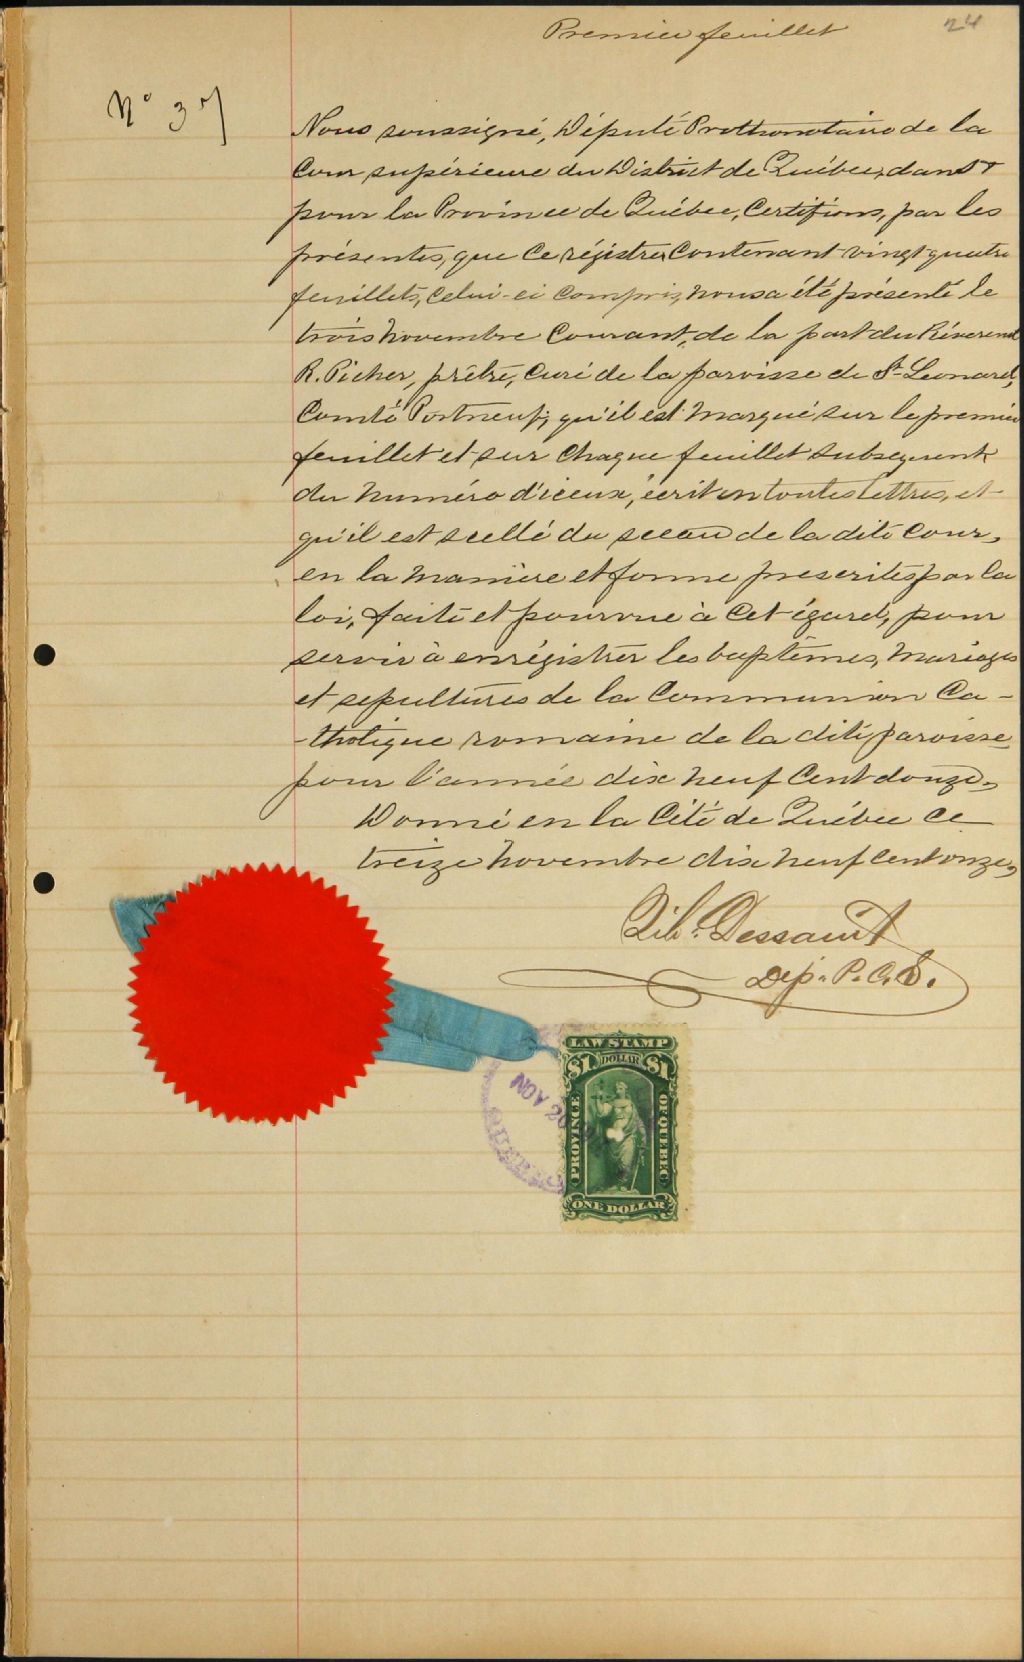 Premier feuillet
24
N° 37
Nous soussigné, Député Prothonotaire de la
Cour supérieure du District de Québec, dans &
pour la Province de Québec, Certifions, par les
présentes, que ce régistre, contenant vingt quatre
feuillets, celui-ci compris, nous a été présenté le
trois novembre courant, de la part du Révérend
R. Picher, prêtre, curé de la paroisse de St-Leonard,
Comté Portneuf; qu'il est marqué sur le premier
feuillet et sur chaque feuillet subsequent
du numéro d'iceux, écrit en toutes lettres, et
qu'il est scellé du sceau de la dite Cour,
en la manière et forme prescrites par la
loi, faite et pourvue à cet égard, pour
servir à enrégistrer les baptêmes, mariages
et sépultures de la Communion Ca-
-tholique romaine de la dite paroisse
pour l'année dix neuf cent douze,
Donné en la Cité de Québec ce
treize novembre dix neuf cent onze,
Dessaint
Dep. P. C. S.
LAW STAMP
$1 DOLLAR $1
NOV 20
PROVINCE
OF QUEBEC
QUEBEC
ONE DOLLAR